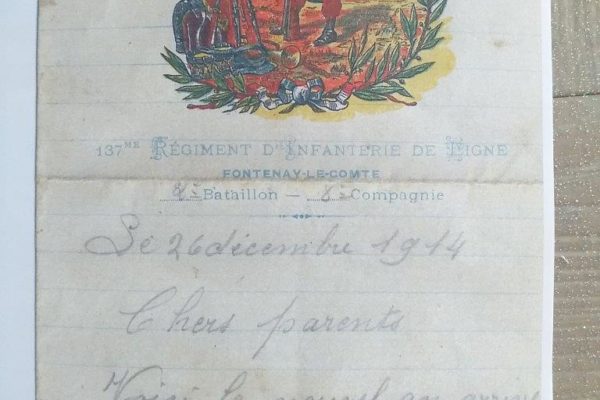 137ME RÉGIMENT D'INFANTERIE DE LIGNE
FONTENAY-LE-COMTE
2e Bataillon – 8e Compagnie
Le 26 décembre 1914
Chers parents
Voici le nouvel an arrive